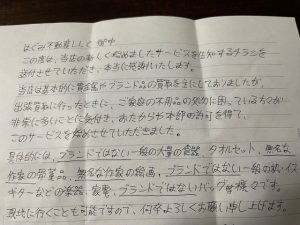 はぐみ不動産しんぐ 御中
この度は、当店の新しく始めましたサービスを告知するチラシを
送付させていただき、本当に感謝いたします。
当店は基本的に貴金属やブランド品の買取を主にしておりましたが、
出張買取に行ったときに、ご家庭の不用品の処分に困っている方々が
非常に多いことに気付き、あたらや本部の許可を得て、
このサービスを始めさせていただきました。
具体的には、ブランドではない一般の大量の食器、タオルセット、無名な
作家の骨董品、無名な作家の絵画、ブランドではない一般の机・イス
ギターなどの楽器、家電、ブランドではないバッグ等様々です。
現地に行くことも可能ですので、何卒よろしくお願い申し上げます。